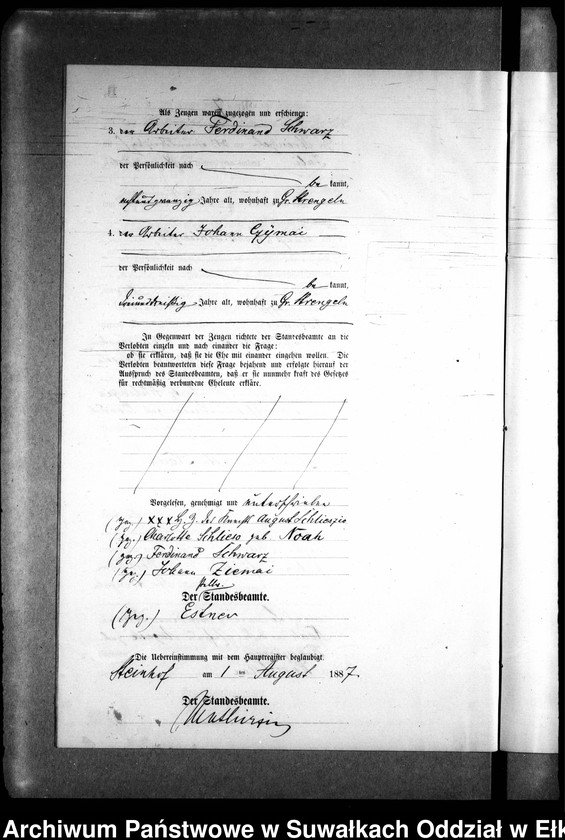 Als Zeugen waren zugezogen und erschienen:
3. der Arbeiter Ferdinand Schwarz
der Persönlichkeit nach
be kannt,
Jahre alt, wohnhaft zu Gr. Strengeln
4. der Arbeiter Johann Gymai
der Persönlichkeit nach
be kannt,
dreiunddreißig Jahre alt, wohnhaft zu Gr. Strengeln
In Gegenwart der Zeugen richtete der Standesbeamte an die
Verlobten einzeln und nach einander die Frage:
ob sie erklären, daß sie die Ehe mit einander eingehen wollen. Die
Verlobten beantworteten diese Frage bejahend und erfolgte hierauf der
Ausspruch des Standesbeamten, daß er sie nunmehr kraft des Gesetzes
für rechtmäßig verbundene Eheleute erkläre.
Vorgelesen, genehmigt und unterschrieben
(gez.) XXX H. Z. des Knecht August Schlieszio
(gez.) Charlotte Schliess geb Noah
(gez.) Ferdinand Schwarz
(gez.) Johann Ziemai
Der Standesbeamte.
(gez.) Estner
Die Uebereinstimmung mit dem Hauptregister beglaubigt
Steinhof am 1 ten August 1887.
Der Standesbeamte.
Archiwum Państwowe w Suwałkach Oddział w Ełk